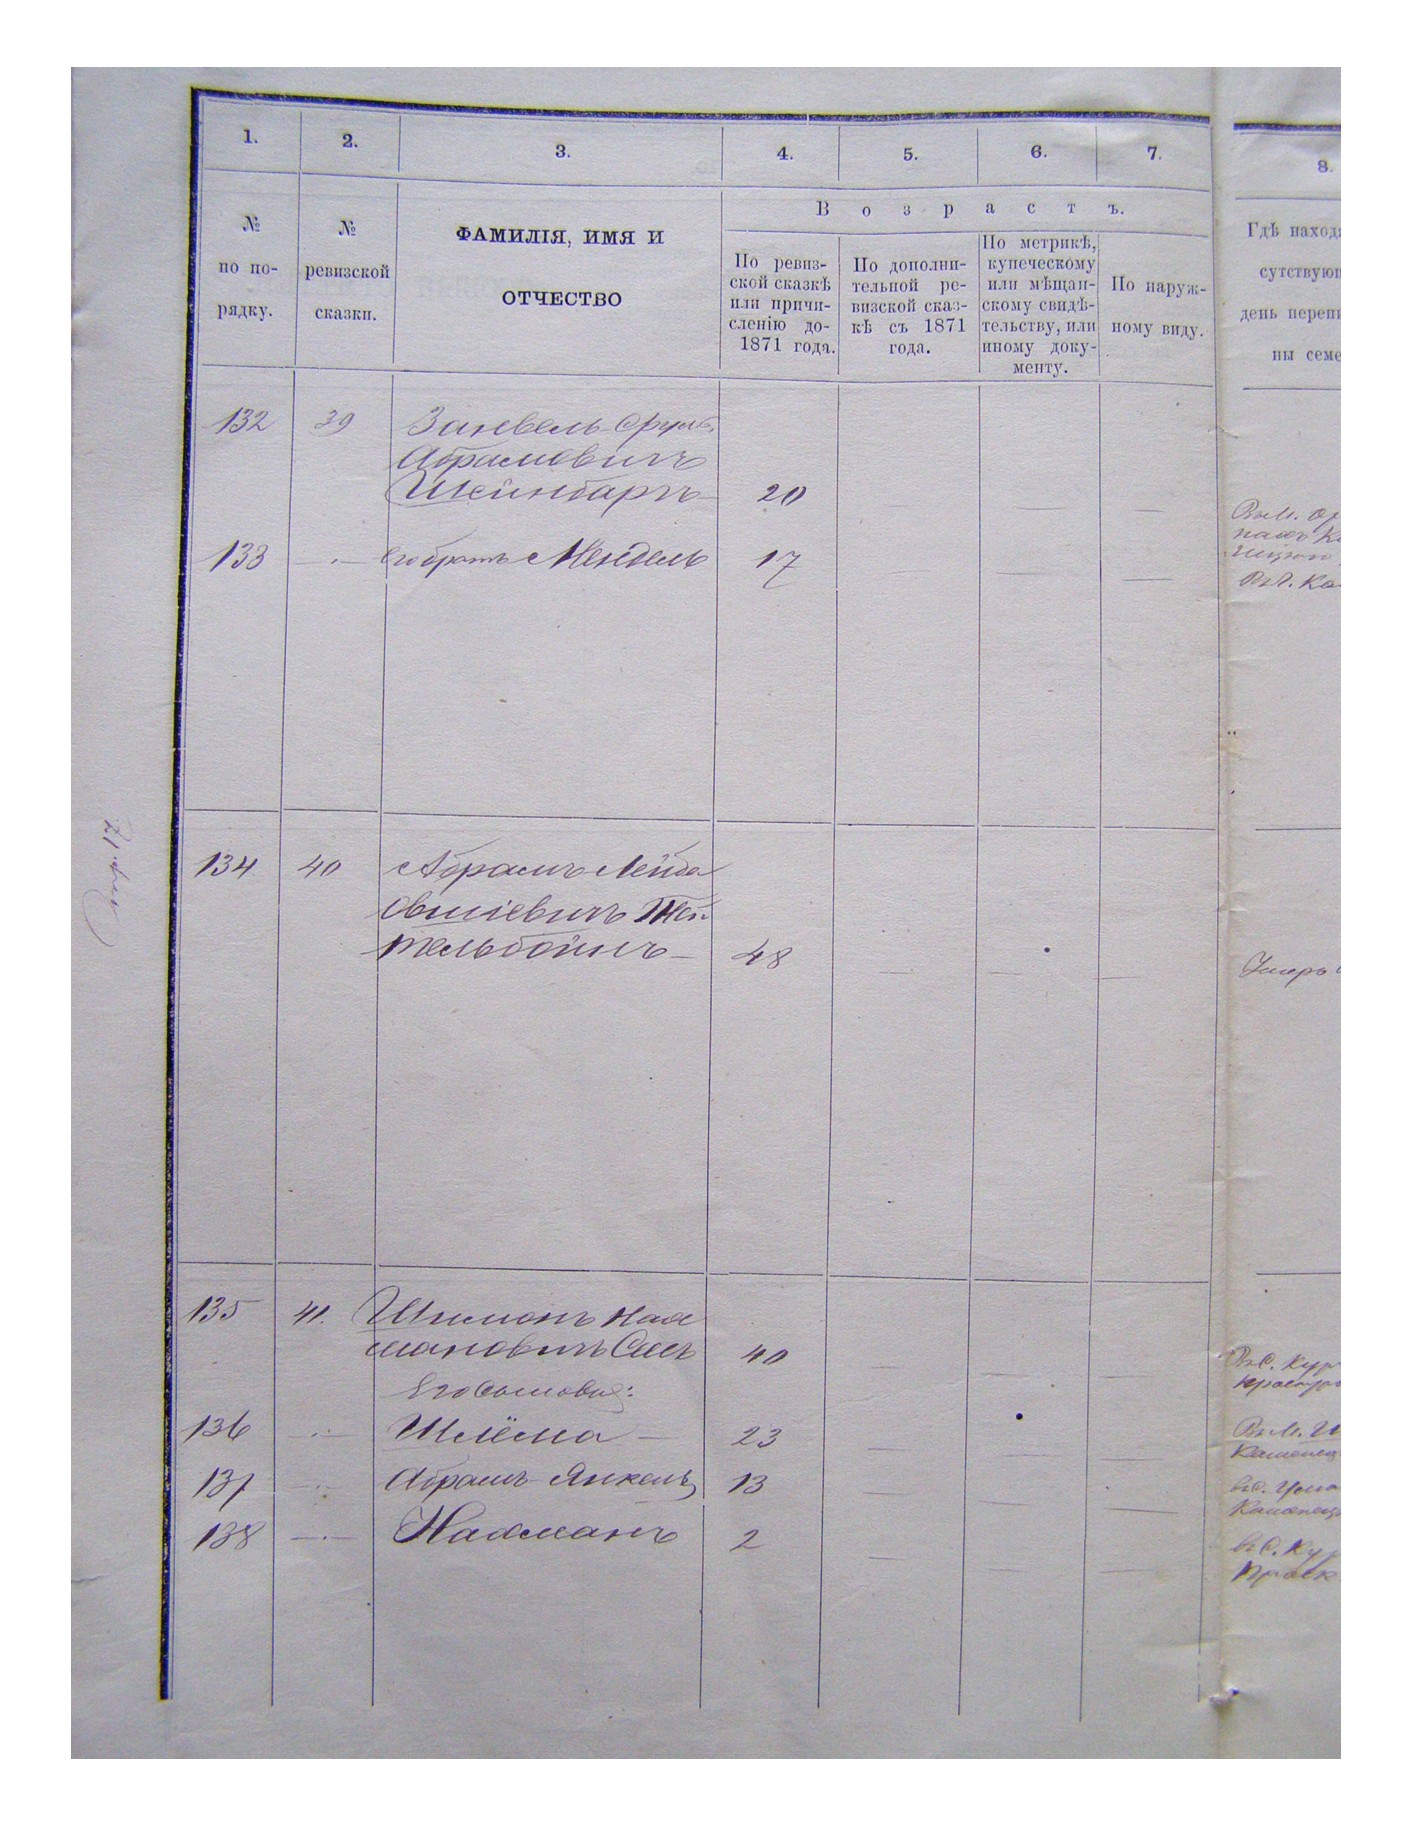 1. 2. 3. 4. 5. 6. 7. 8.
В о з р а с т ъ.
№
по по-
рядку.
№
ревизской
сказки.
ФАМИЛІЯ, ИМЯ И
ОТЧЕСТВО
По ревиз-
ской сказкѣ
или причи-
сленію до-
1871 года.
По дополни-
тельной ре-
визской сказ-
кѣ съ 1871
года.
По метрикѣ,
купеческому
или мѣщан-
скому свидѣ-
тельству, или
иному доку-
менту.
По наруж-
ному виду.
Гдѣ наход
сутствую
день переп
ны семе
132 39 Занвель Сруль
Абрамовичъ
Шейнбаргъ 20
133 Его братъ Мендель 17
134 40 Абрамъ Лейба
Овшіевичъ Тей
тельбоймъ 48
Умеръ
135 41. Шимонъ Нах
мановичъ 40
Его Сыновья:
136 Шлёма 23
137 Абрамъ Янкель 13
138 Нахманъ 2